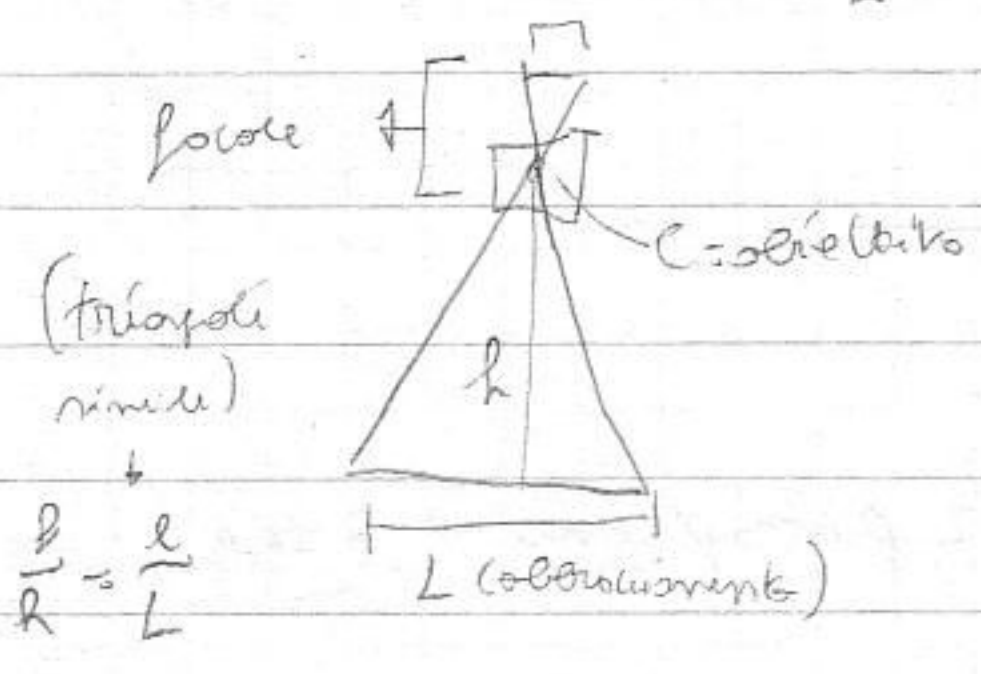 focale
C = obiettivo
(triangoli
simili)
h
f/h = l/L
L (abbracciamento)